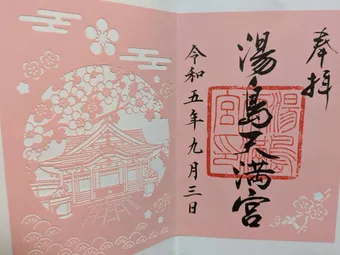 奉拝
湯島天満宮
令和五年九月三日